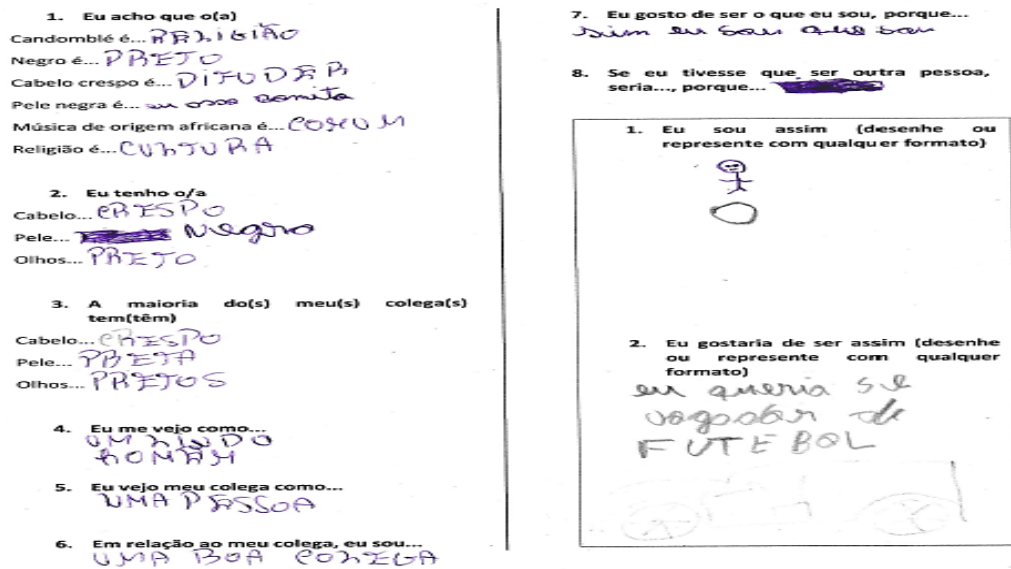 1. Eu acho que o(a)
Candomblé é... RELIGIÃO
Negro é... PRETO
Cabelo crespo é...
Pele negra é... bomita
Música de origem africana é... COMUM
Religião é... CULTURA
2. Eu tenho o/a
Cabelo... CRESPO
Pele... Negro
Olhos... PRETO
3. A maioria do(s) meu(s) colega(s)
tem(têm)
Cabelo... CRESPO
Pele... PRETA
Olhos... PRETOS
4. Eu me vejo como...
UM LINDO
HOMEM
5. Eu vejo meu colega como...
UMA PESSOA
6. Em relação ao meu colega, eu sou...
UMA BOA COLEGA
7. Eu gosto de ser o que eu sou, porque...
sim eu sou que sou
8. Se eu tivesse que ser outra pessoa,
seria..., porque...
1. Eu sou assim (desenhe ou
represente com qualquer formato)
2. Eu gostaria de ser assim (desenhe
ou represente com qualquer
formato)
eu queria se
de
FUTEBOL